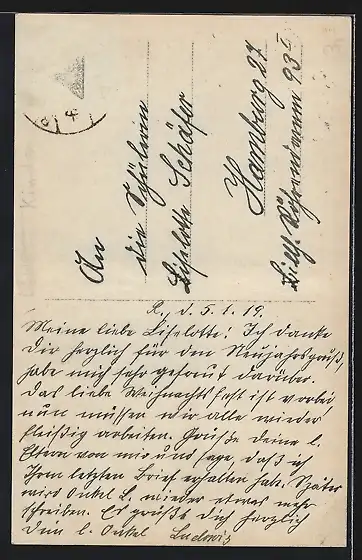 An
die Schülerin
Liselotte Schäfer
Hamburg 27
Billh. Röhrendamm 93 I
R., d. 5.1.19.
Meine liebe Liselotte! Ich danke
Dir herzlich für den Neujahrsgruß,
habe mich sehr gefreut darüber.
Das liebe Weihnachtsfest ist vorbei
nun müssen wir alle wieder
fleißig arbeiten. Grüße deine l.
Eltern von mir und sage, daß ich
Ihren letzten Brief erhalten hab. Später
wird Onkel L. wieder etwas mehr
schreiben. Es grüßt dich herzlich
dein l. Onkel Ludwig